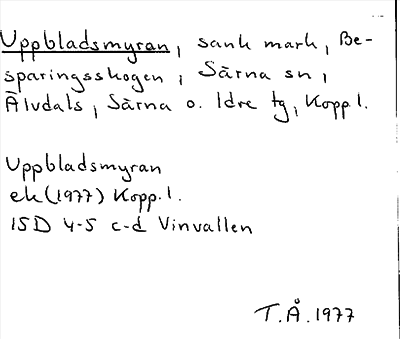 Uppbladsmyran, sank mark, Be-
sparingsskogen, Särna sn,
Älvdals, Särna o. Idre tg, Kopp.l.
Uppbladsmyran
ek (1977) Kopp.l.
15D 4-5 c-d Vinvallen
T.Å. 1977